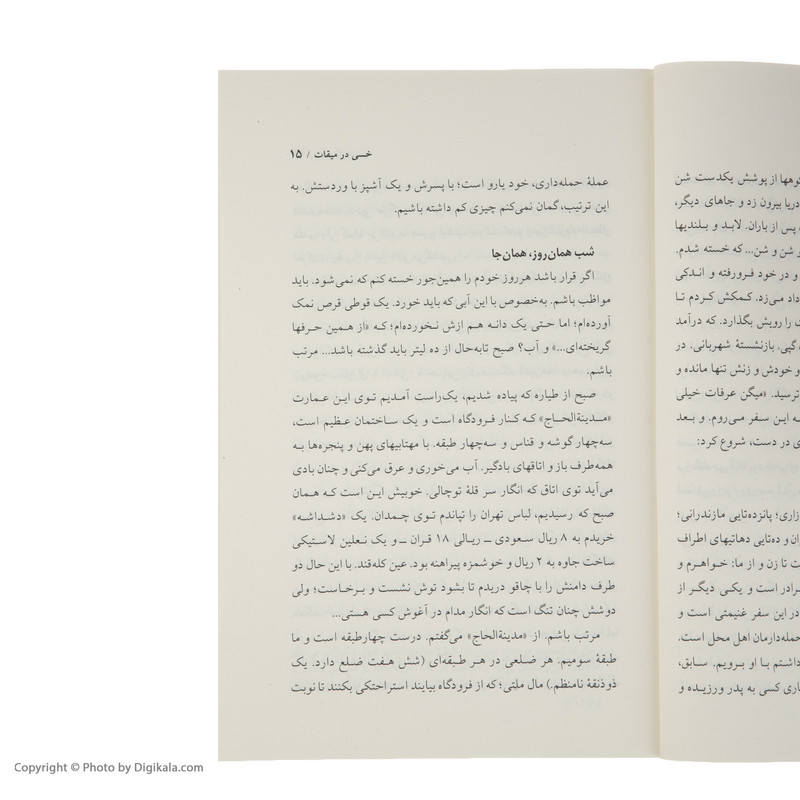 کوهها از پوشش یکدست شن
دریا بیرون زد و جاهای دیگر،
پس از باران. لابد و بلندیها
و شن و شن... که خسته شدم.
و در خود فرورفته و اندکی
داد می‌زد. کمکش کردم تا
را رویش بگذارد. که درآمد
گپی. بازنشستهٔ شهربانی. در
و خودش و زنش تنها مانده و
ترسید. «میگن عرفات خیلی
به این سفر می‌روم. و بعد
در دست، شروع کرد:
پانزده‌تایی مازندرانی؛
و ده‌تایی دهاتیهای اطراف
تا زن و از ما: خواهرم و
است و یکی دیگر از
در این سفر غنیمتی است و
حمله‌دارمان اهل محل است.
داشتم با او برویم. سابق،
کسی به پدر ورزیده و
خسی در میقات / ۱۵
عملهٔ حمله‌داری، خود یارو است؛ با پسرش و یک آشپز با وردستش. به
این ترتیب، گمان نمی‌کنم چیزی کم داشته باشیم.
شب همان‌روز، همان‌جا
اگر قرار باشد هرروز خودم را همین‌جور خسته کنم که نمی‌شود. باید
مواظب باشم. به‌خصوص با این آبی که باید خورد. یک قوطی قرص نمک
آورده‌ام؛ اما حتی یک دانه هم ازش نخورده‌ام؛ که «از همین حرفها
گریخته‌ای...» و آب؟ صبح تابه‌حال از ده لیتر باید گذشته باشد... مرتب
باشم.
صبح از طیاره که پیاده شدیم، یک‌راست آمدیم توی این عمارت
«مدینةالحاج» که کنار فرودگاه است و یک ساختمان عظیم است،
سه‌چهار گوشه و قناس و سه‌چهار طبقه. با مهتابیهای پهن و پنجره‌ها به
همه‌طرف باز و اتاقهای بادگیر. آب می‌خوری و عرق می‌کنی و چنان بادی
می‌آید توی اتاق که انگار سر قلهٔ توچالی. خوبیش این است که همان
صبح که رسیدیم، لباس تهران را تپاندم توی چمدان. یک «دشداشه»
خریدم به ۸ ریال سعودی ــ ریالی ۱۸ قران ــ و یک نعلین لاستیکی
ساخت جاوه به ۲ ریال و خوشمزه پیراهنه بود. عین کله‌قند. با این حال دو
طرف دامنش را با چاقو دریدم تا بشود توش نشست و برخاست؛ ولی
دوشش چنان تنگ است که انگار مدام در آغوش کسی هستی...
مرتب باشم. از «مدینةالحاج» می‌گفتم. درست چهارطبقه است و ما
طبقهٔ سومیم. هر ضلعی در هر طبقه‌ای (شش هفت ضلع دارد. یک
ذوذنقهٔ نامنظم.) مال ملتی؛ که از فرودگاه بیایند استراحتکی بکنند تا نوبت
Copyright © Photo by Digikala.com